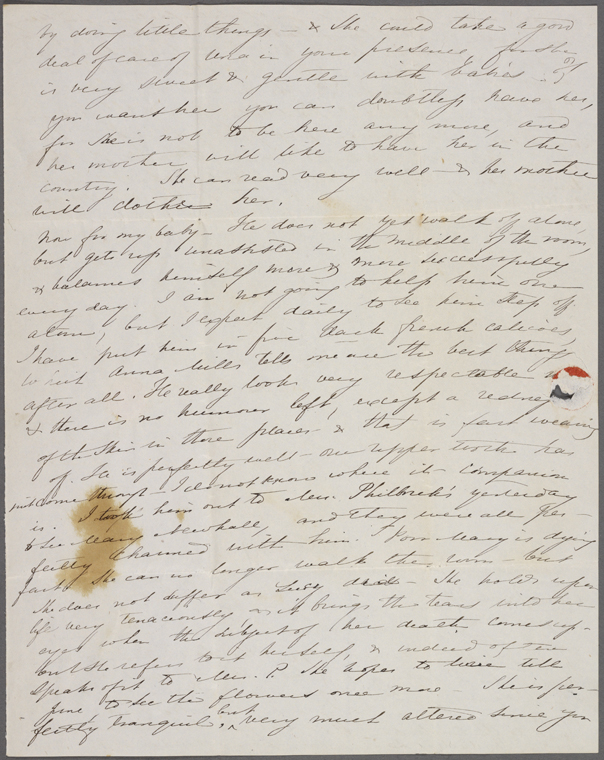 by doing little things — & she could take a good
deal of care of Una in your presence for she
is very sweet & gentle with babies. If
you want her you can doubtless have her,
for she is not to be here any more, and
her mother will like to have her in the
country. She can read very well — & her mother
will clothe her.
Now for my baby — He does not yet walk off alone,
but gets up unassisted in the middle of the room,
& balances himself more & more successfully
every day. I am not going to help him one
atom, but I expect daily to see him step off
I have put him in fine dark french calicoes,
which Anna Mills tells me are the best things
after all. He really looks very respectable
& there is no humour left, except a redness
of the skin in those places & that is fast wearing
off. He is perfectly well — one upper tooth has
just come through — I do not know where its companion
is. I took him out to Mrs. Philbrick's yesterday
to see Mary Newhall, and they were all per-
fectly charmed with him. Poor Mary is dying
fast. She can no longer walk the room but
she does not suffer as Lucy did — She holds upon
life very tenaciously & it brings the tears into her
eyes when the subject of her death comes up —
but she refers to it herself, & indeed often
speaks of it to Mrs. P. She hopes to live till
June to see the flowers once more — She is per-
fectly tranquil, but very much altered since you